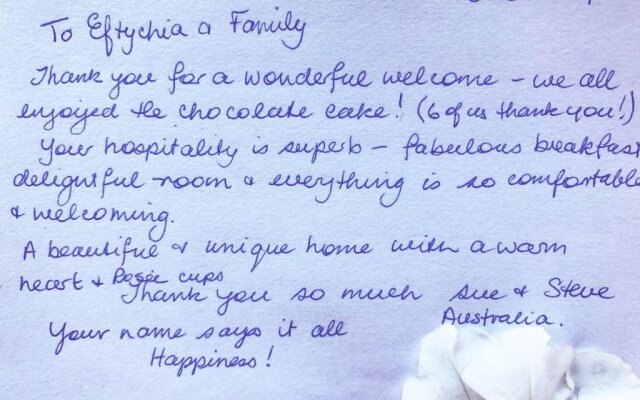 To Eftychia & Family
Thank you for a wonderful welcome - we all
enjoyed the chocolate cake! (6 of us thank you!)
Your hospitality is superb - fabulous breakfast
delightful room & everything is so comfortable
& welcoming.
A beautiful & unique home with a warm
heart & Rosie cups
Thank you so much Sue & Steve
Australia.
Your name says it all
Happiness!